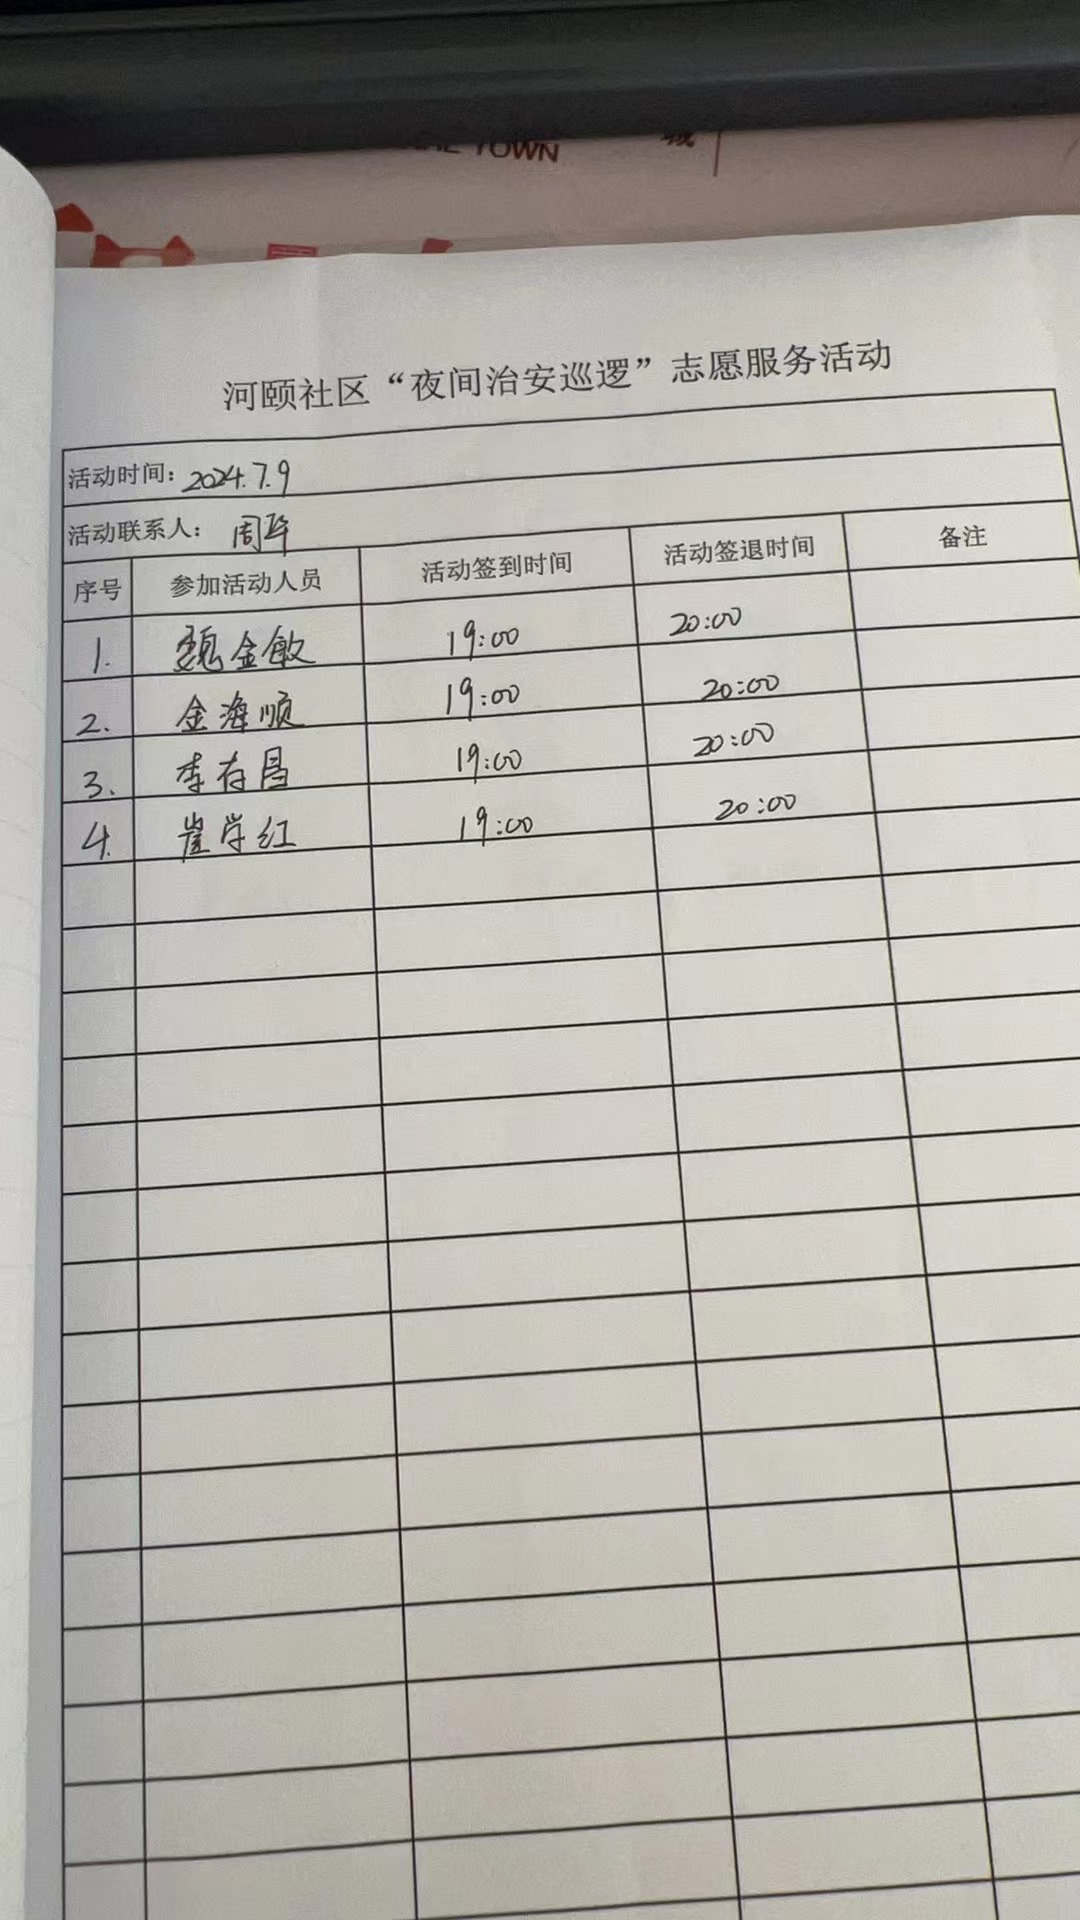 TOWN
城
河颐社区“夜间治安巡逻”志愿服务活动
活动时间：2024.7.9
活动联系人：周华
序号 参加活动人员 活动签到时间 活动签退时间 备注
1. 魏金敏 19:00 20:00
2. 金海顺 19:00 20:00
3. 李存昌 19:00 20:00
4. 崔学红 19:00 20:00